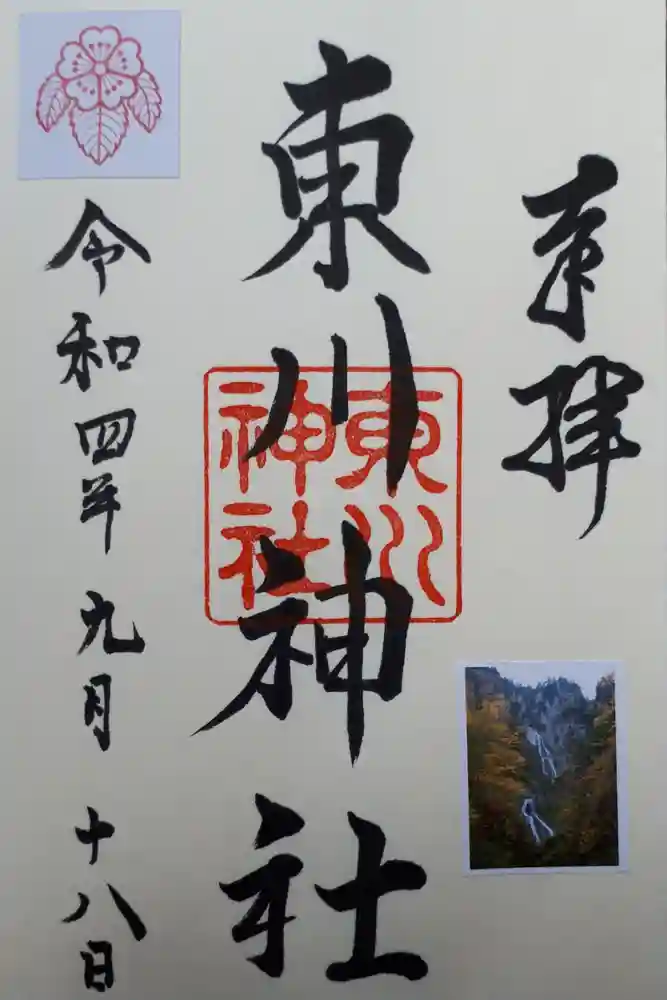 奉拝
東川神社
東川神社
令和四年九月十八日